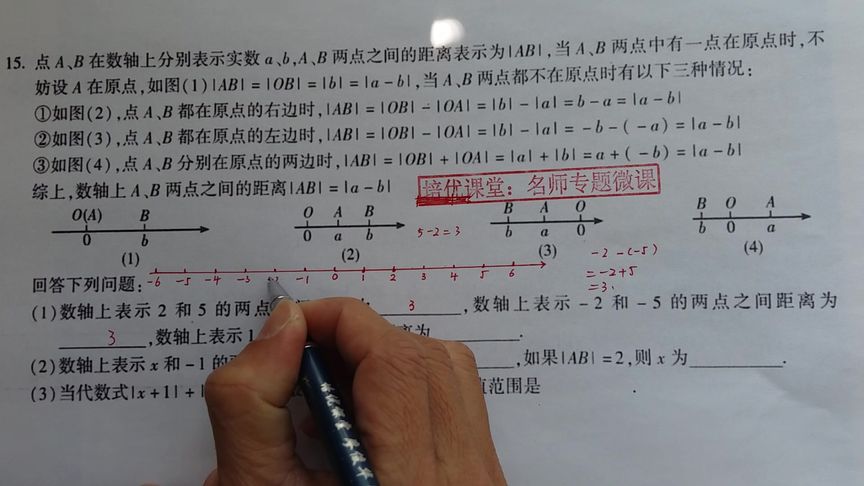 15. 点 A、B 在数轴上分别表示实数 a、b,A、B 两点之间的距离表示为|AB|,当 A、B 两点中有一点在原点时,不
妨设 A 在原点,如图(1)|AB| = |OB| = |b| = |a - b|,当 A、B 两点都不在原点时有以下三种情况:
①如图(2),点 A、B 都在原点的右边时,|AB| = |OB| - |OA| = |b| - |a| = b - a = |a - b|
②如图(3),点 A、B 都在原点的左边时,|AB| = |OB| - |OA| = |b| - |a| = - b - ( - a) = |a - b|
③如图(4),点 A、B 分别在原点的两边时,|AB| = |OB| + |OA| = |a| + |b| = a + ( - b) = |a - b|
综上,数轴上 A、B 两点之间的距离|AB| = |a - b|
培优课堂:名师专题微课
O(A) B
0 b
(1)
O A B
0 a b
(2)
5-2=3
B A O
b a 0
(3)
B O A
b 0 a
(4)
-2-(-5)
=-2+5
=3.
回答下列问题:
-6 -5 -4 -3 -2 -1 0 1 2 3 4 5 6
(1)数轴上表示 2 和 5 的两点 3 ,数轴上表示 - 2 和 - 5 的两点之间距离为
3 ,数轴上表示 1 为 .
(2)数轴上表示 x 和 - 1 的 ,如果|AB| = 2,则 x 为 .
(3)当代数式|x + 1| + | 值范围是 .